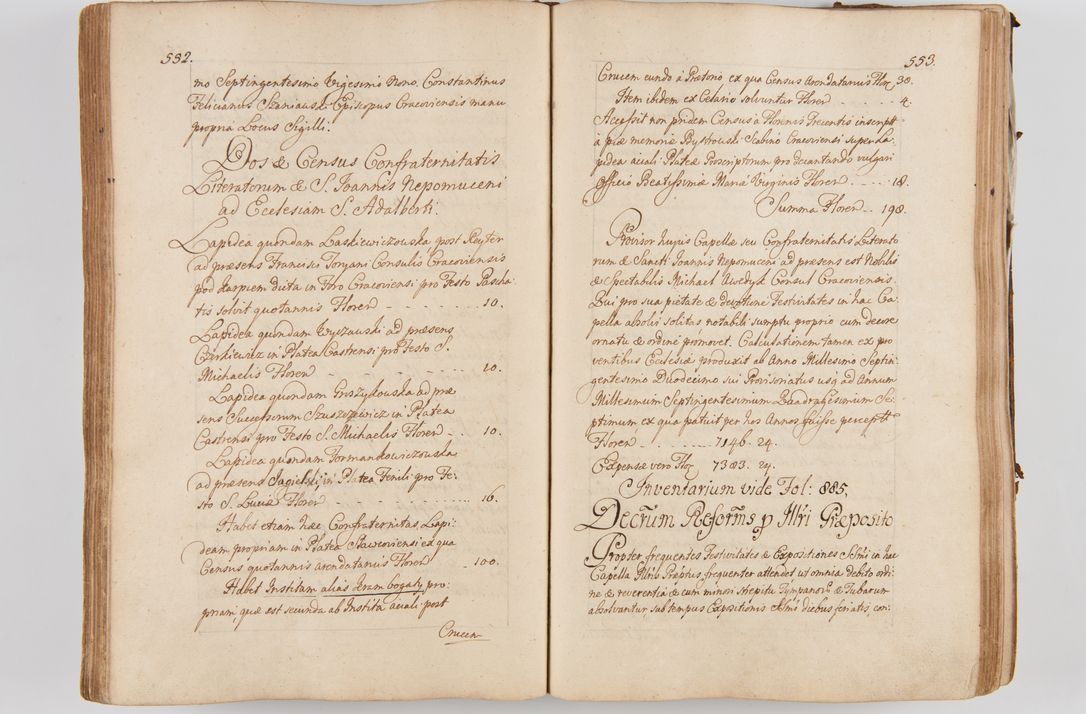 532.
mo Septingentesimo Vigesimo Nono. Constantinus
Felicianus Szaniauski Episcopus Cracoviensis manu
propria Locus Sigilli.
Dos & Census Confraternitatis
Literatorum & S. Joannis Nepomuceni
ad Ecclesiam S. Adalberti.
Lapidea quondam Laskiewiczowska post Reyter
ad præsens Francisci Toryani Consulis Cracoviensis
pod Karpiem dicta in Foro Cracoviensi pro Festo Pascha
tis solvit quotannis Floren - - - 10.
Lapidea quondam ad præsens
in Platea Castrensi pro Festo S.
Michaelis Floren - - - 10.
Lapidea quondam Groszydkowska ad præ
sens Successorum Szuszczewicz in Platea
Castrensi pro Festo S. Michaelis Floren - - 10.
Lapidea quondam Formankowiczowska
ad præsens Jagielski in Platea Fenili pro Fe-
sto S. Luciæ Floren - - - 16.
Habet etiam hæc Confraternitas, Lapi-
deam propriam in Platea Slaweoviensi ex qua
Census quotannis arendatarius Floren - - 100.
Habet Institam alias kram bogaty pro-
priam, quæ est secunda ab Instita acuali post
Crucem
553.
Crucem eundo à Prætorio ex qua Census Arendatarius Flor. 30.
Item ibidem ex Celario solvuntur Floren - - - 4.
Accessit non pridem Census à Florenis Trecentis inscript
à piæ memoria Bystrouski Scabino Cracoviensi super La-
pidea acuali Plateæ Proscriptorum pro decantando vulgari
Officio Beatissimæ Mariæ Virginis Floren - - - 18.
Summa Floren - - 198.
Provisor hujus Capellæ seu Confraternitatis Literato
rum & Sancti Joannis Nepomuceni ad præsens est Nobilis
& Spectabilis Michael Awedyk Consul Cracoviensis.
Qui pro sua pietate & devotione Festivitates in hac Ca-
pella absolvi solitas notabili sumptu proprio cum decore
ornatu & ordine promovet. Calculationem tamen ex pro
ventibus Ecclesiæ produxit ab Anno Millesimo Septin-
gentesimo Duodecimo sui Provisoriatus usq ad Annum
Millesimum Septingentesimum Quadragesimum Se-
ptimum ex qua patuit per hos Annos fuisse percept
Floren - - - 7146. 24.
Expensæ vero Flor. 7383. 24.
Inventarium vide Fol: 885.
Decrum Reforms p Illri Præposito
Propter frequentes Festivitates & Expositiones SSmi in hac
Capella Illris Præptus frequenter attendet ut omnia debito ordi-
ne & reverentia & cum minori strepitu Tympanor & Tubarum
absolvantur sub tempus Expositionis SSmi diebus feriatis, con-